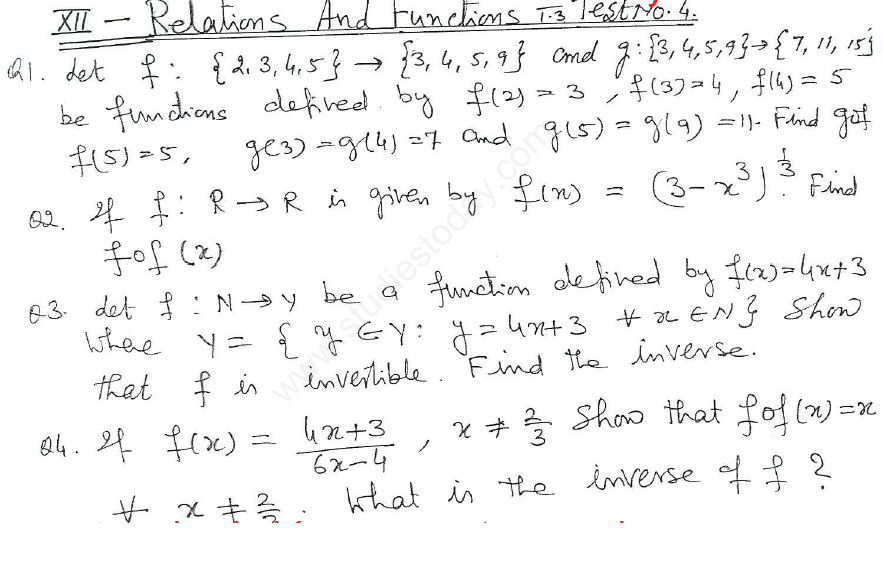 XII - Relations And Functions T.3 Test No. 4.
Q1. Let f : {2,3,4,5} → {3,4,5,9} and g : {3,4,5,9} → {7, 11, 15}
be functions defined by f(2) = 3 , f(3) = 4 , f(4) = 5
f(5) = 5, g(3) = g(4) = 7 and g(5) = g(9) = 11. Find gof
Q2. If f : R → R is given by f(x) = (3 - x³)^(1/3). Find
fof (x)
Q3. Let f : N → Y be a function defined by f(x) = 4x+3
Where Y = { y ∈ Y : y = 4x+3 ∀ x ∈ N } Show
that f is invertible. Find the inverse.
Q4. If f(x) = (4x+3)/(6x-4) , x ≠ 2/3 Show that fof(x) = x
∀ x ≠ 2/3 . What is the inverse of f ?
www.studiestoday.com